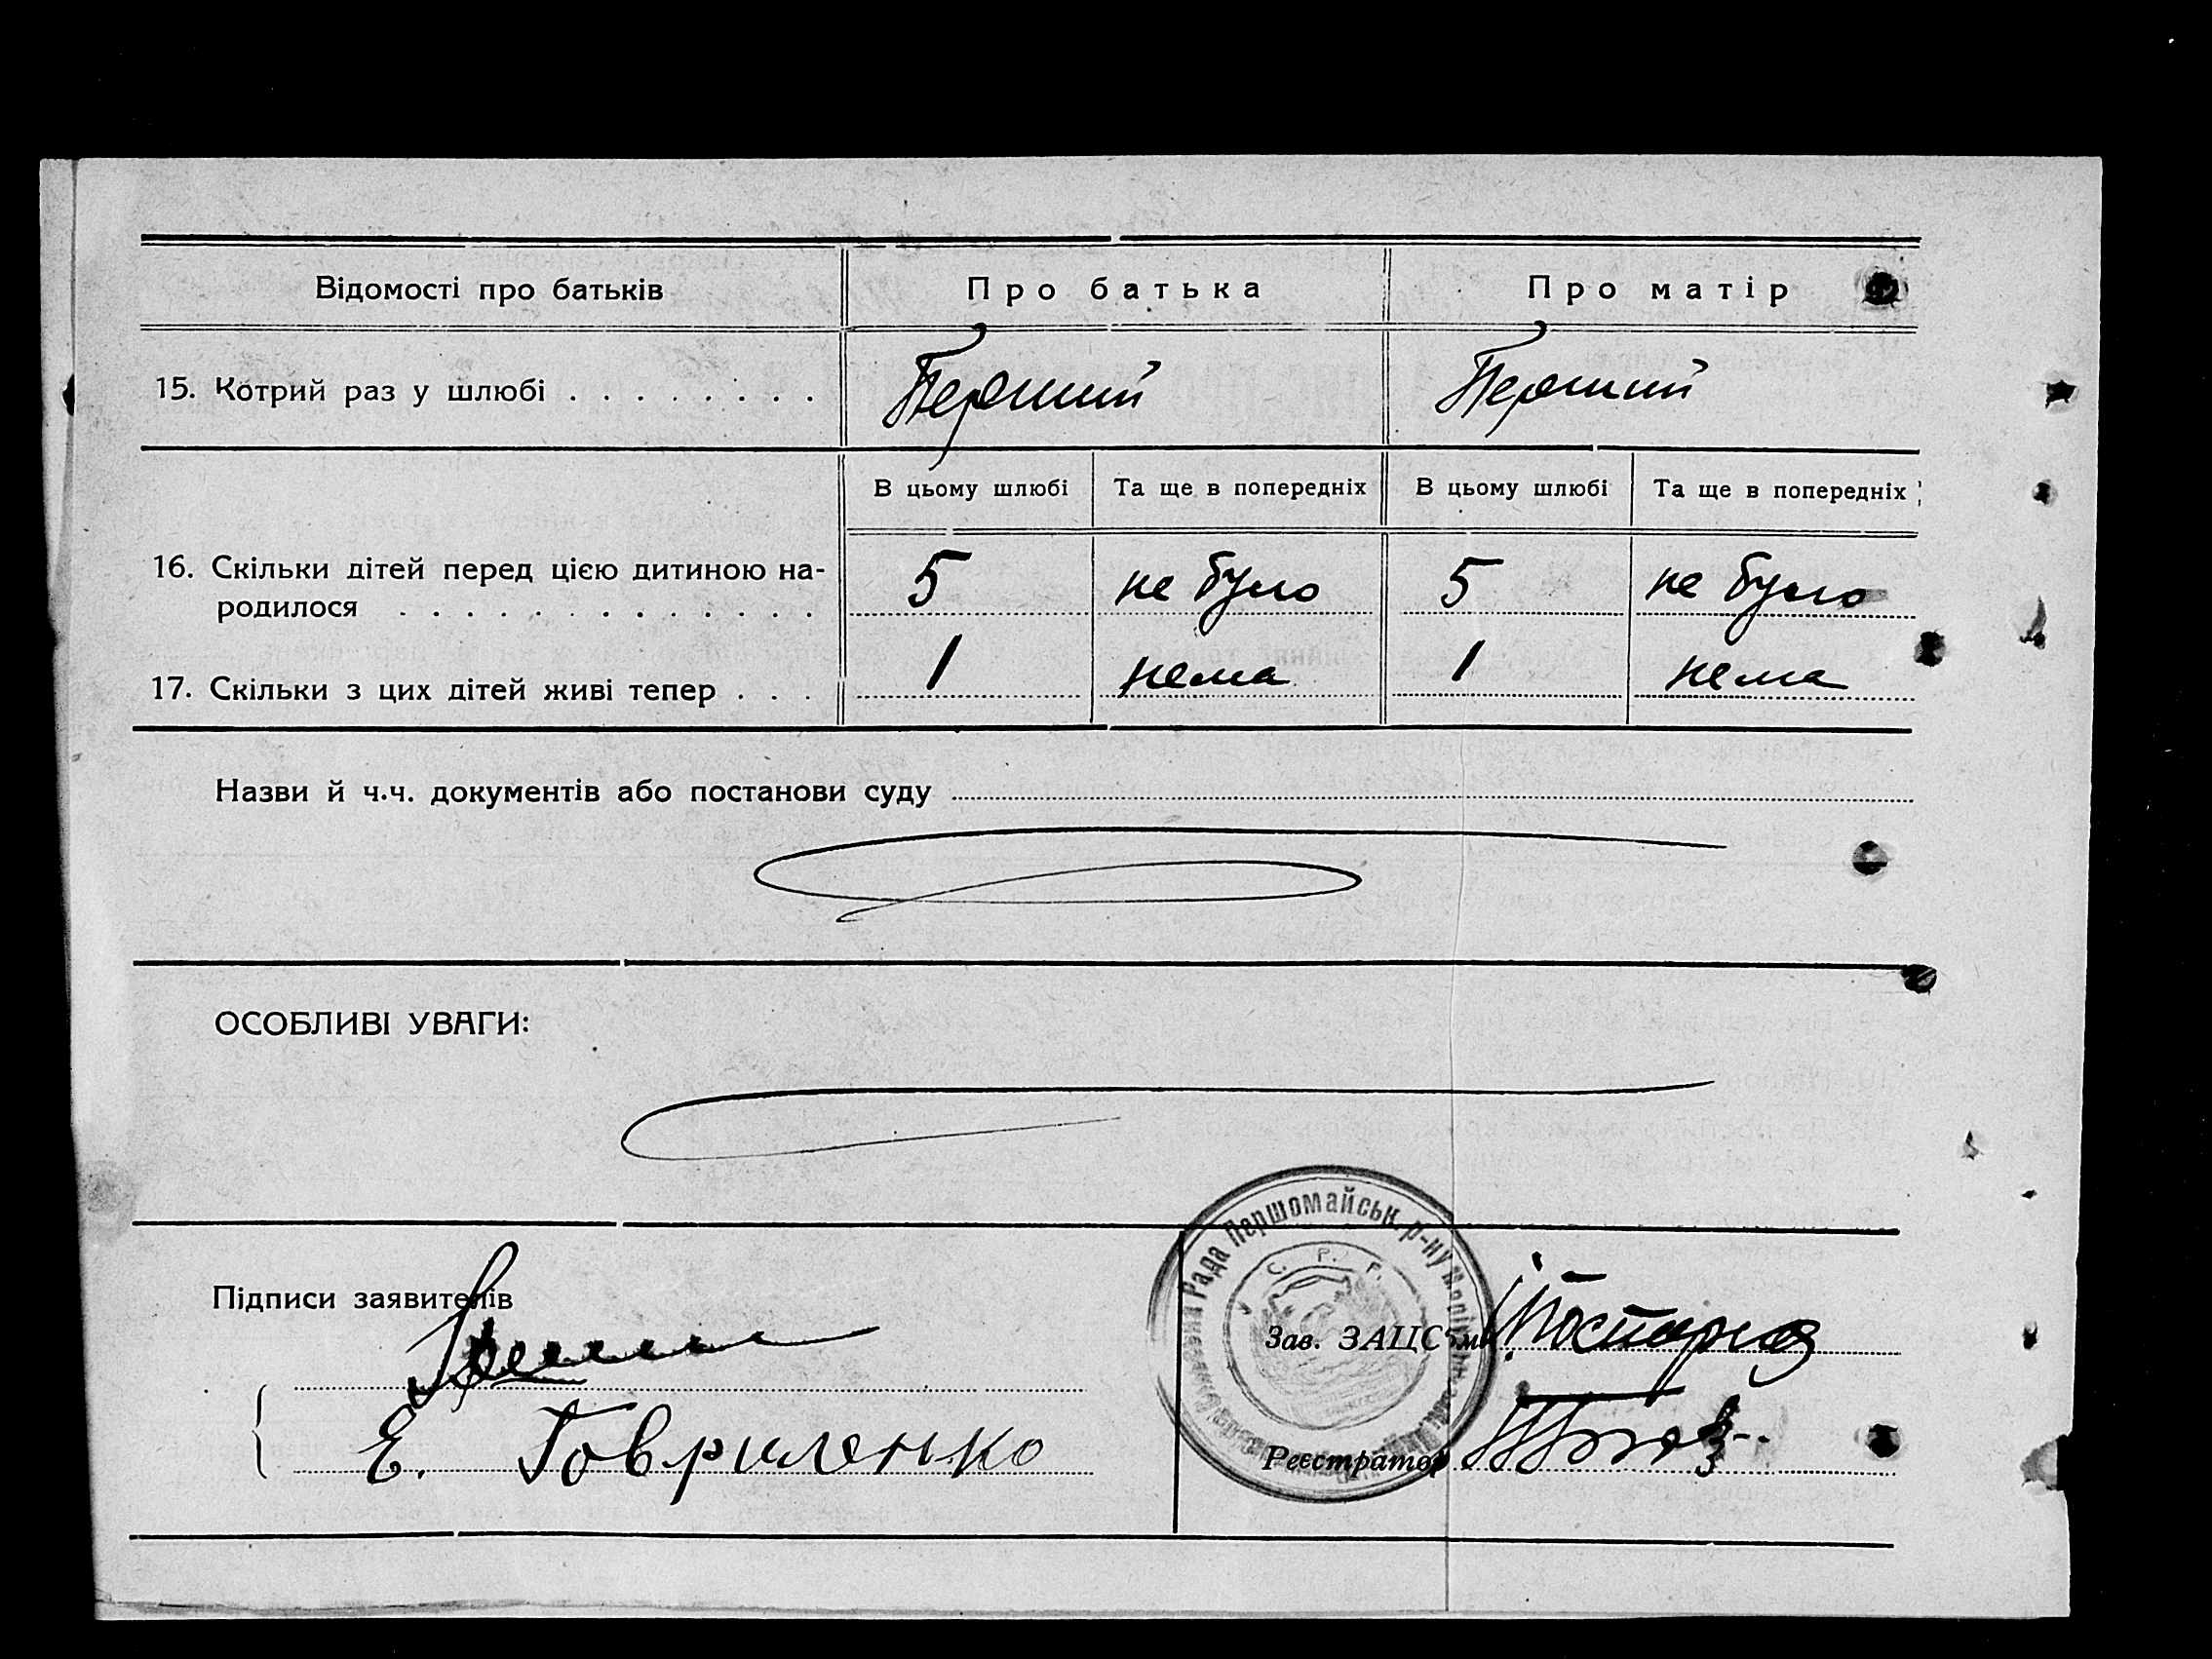 Відомості про батьків Про батька Про матір
15. Котрий раз у шлюбі . . . . . . . . Перший Перший
В цьому шлюбі Та ще в попередніх В цьому шлюбі Та ще в попередніх
16. Скільки дітей перед цією дитиною на-
родилося . . . . . . . . . . . . . 5 не було 5 не було
17. Скільки з цих дітей живі тепер . . . 1 нема 1 нема
Назви й ч.ч. документів або постанови суду
ОСОБЛИВІ УВАГИ:
Рада Першомайськ. р-ну
С. Р. Р.
Підписи заявителів
Зав. ЗАЦС'ом
Е. Говриленко
Реєстратор